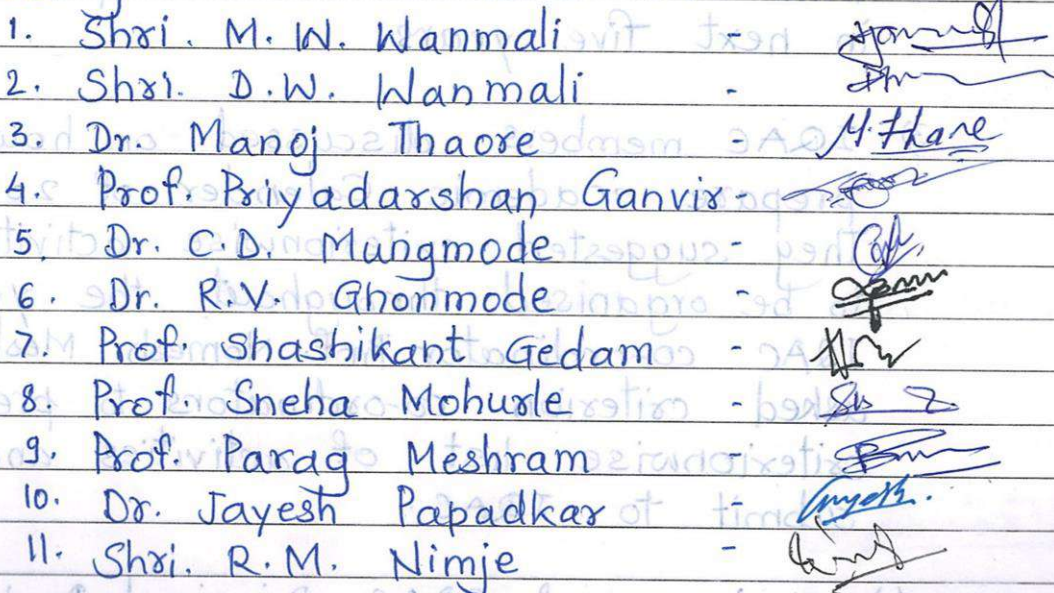 1. Shri. M. W. Wanmali -
2. Shri. D.W. Wanmali -
3. Dr. Manoj Thaore - M. Thane
4. Prof. Priyadarshan Ganvir -
5. Dr. C.D. Mungmode -
6. Dr. R.V. Ghonmode -
7. Prof. Shashikant Gedam -
8. Prof. Sneha Mohurle -
9. Prof. Parag Meshram -
10. Dr. Jayesh Papadkar -
11. Shri. R.M. Nimje -